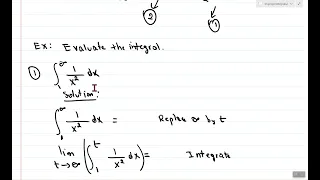 ② ①
Ex: Evaluate the integral.
① ∫₁^∞ 1/x² dx
Solution:
∫₁^∞ 1/x² dx = Replace ∞ by t
lim t→∞ (∫₁^t 1/x² dx) = Integrate